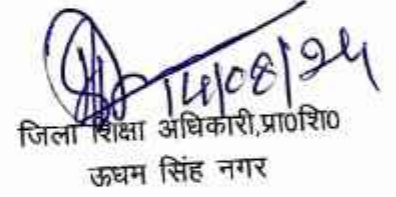 14/08/24
जिला शिक्षा अधिकारी,प्रा0शि0
ऊधम सिंह नगर